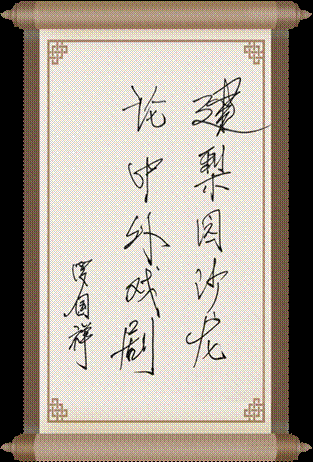 建梨园沙龙
论中外戏剧
国祥